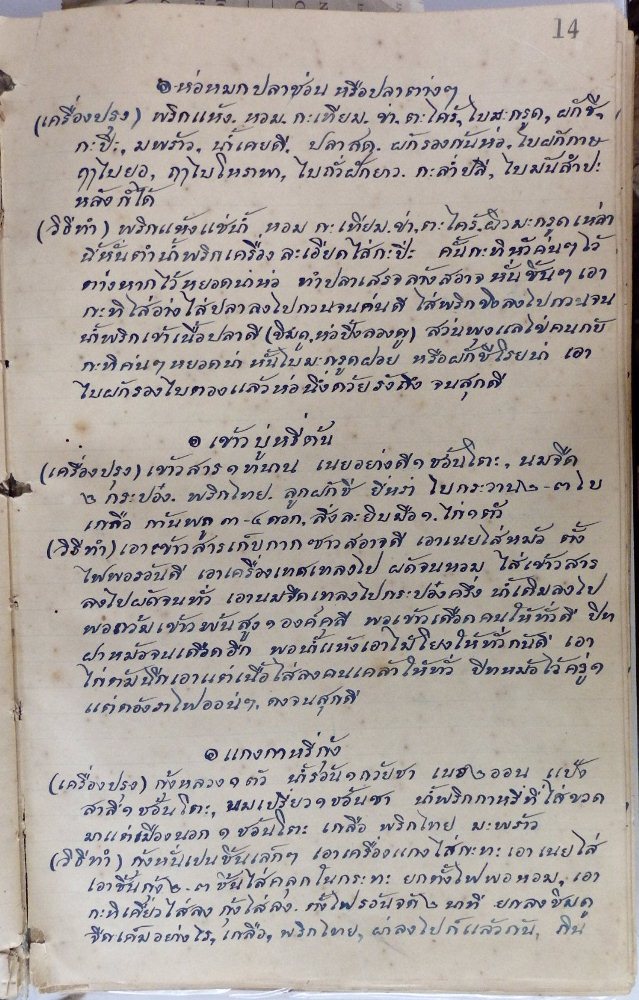 14
๑ ห่อหมกปลาช่อน หรือปลาต่างๆ
(เครื่องปรุง) พริกแห้ง. หอม. กะเทียม. ข่า. ตะไคร้, ใบมะกรูด, ผักชี,
กะปี, มพร้าว, น้ำเคยดี. ปลาสด. ผักรองก้นห่อ. ใบผักกาษ
ฤๅใบยอ, ฤๅใบโหราพา, ใบถั่วฝักยาว. กะล่ำปลี, ใบมันสำปะ
หลัง ก็ได้
(วิธีทำ) พริกแห้งแช่น้ำ หอม กะเทียม. ข่า, ตะไคร้. ผิวมะกรูด เหล่า
นี้หั่นตำน้ำพริกเครื่อง ละเอียดใส่กะปิ คั้นกะทิหัวค่นๆ ไว้
ต่างหากไว้หยอดน่าห่อ ทำปลาเสรจล้างสอาจ หั่นชิ้นๆ เอา
กะทิใส่อ่างใส่ปลาลงไปกวนจนค่นดี ใส่พริกขิงลงไปกวนจน
น้ำพริกเข้าเนื้อปลาดี (ชิมดู, ห่อปิ้งลองดู) ส่วน แลไข่คนกับ
กะทิค่นๆ หยอดน่า หั่นใบมะกรูดฝอย หรือผักชีโรยน่า เอา
ใบผักรองใบตองแล้วห่อนึ่งด้วยรังถึง จนสุกดี
๑ เข้าบู่หรี่ดัน
(เครื่องปรุง) เข้าสาร ๑ ทนาน เนยอย่างดี ๑ ช้อนโตะ, นมจืด
๒ กระป๋อง. พริกไทย. ลูกผักชี ยี่หร่า ใบกระวาน ๒-๓ ใบ
เกลือ กานพลู ๓-๔ ดอก, สิ่งละยิบมือ ๑. ไก่ ๑ ตัว
(วิธีทำ) เอาเข้าสารเก็บกากซาวสอาจดี เอาเนยใส่หม้อ ตั้ง
ไฟพอร้อนดี เอาเครื่องเทศเทลงไป ผัดจนหอม ใส่เข้าสาร
ลงไปผัดจนทั่ว เอานมจืดเทลงไปกระป๋องครึ่ง น้ำเติมลงไป
พอท่วมเข้าพ้นสูง ๑ องค์คุลี พอเข้าเดือดคนให้ทั่วดี ปิท
ฝาหม้อจนเดือดอีก พอน้ำแห้งเอาไม้โยงให้ทั่วกันดี เอา
ไก่ต้มฉีกเอาแต่เนื้อใส่ลงคนเคล้าให้ทั่ว ปิทหม้อไว้ครู่ ๑
แต่ต้องราไฟออน่ๆ. ดงจนสุกดี
๑ แกงกาหรี่กุ้ง
(เครื่องปรุง) กุ้งหลวง ๑ ตัว น้ำร้อน ๑ ถ้วยชา เนย ๒ ออน แป้ง
สาลี ๑ ช้อนโตะ, นมเปรี้ยว ๑ ช้อนชา น้ำพริกกาหรี่ที่ใส่ขวด
มาแต่เมืองนอก ๑ ช้อนโตะ เกลือ พริกไทย มะพร้าว
(วิธีทำ) กุ้งหั่นเปนชิ้นเล็กๆ เอาเครื่องแกงใส่กะทะ เอาเนยใส่
เอาชิ้นกุ้ง ๒-๓ ชิ้นใส่คลุกในกระทะ ยกตั้งไฟพอหอม, เอา
กะทิเคี่ยวใส่ลง กุ้งใส่ลง. ตั้งไฟร้อนจัด ๒ นาที ยกลงชิมดู
จืดเค็มอย่างไร, เกลือ, พริกไทย, ลงไปก็แล้วกัน, กิน